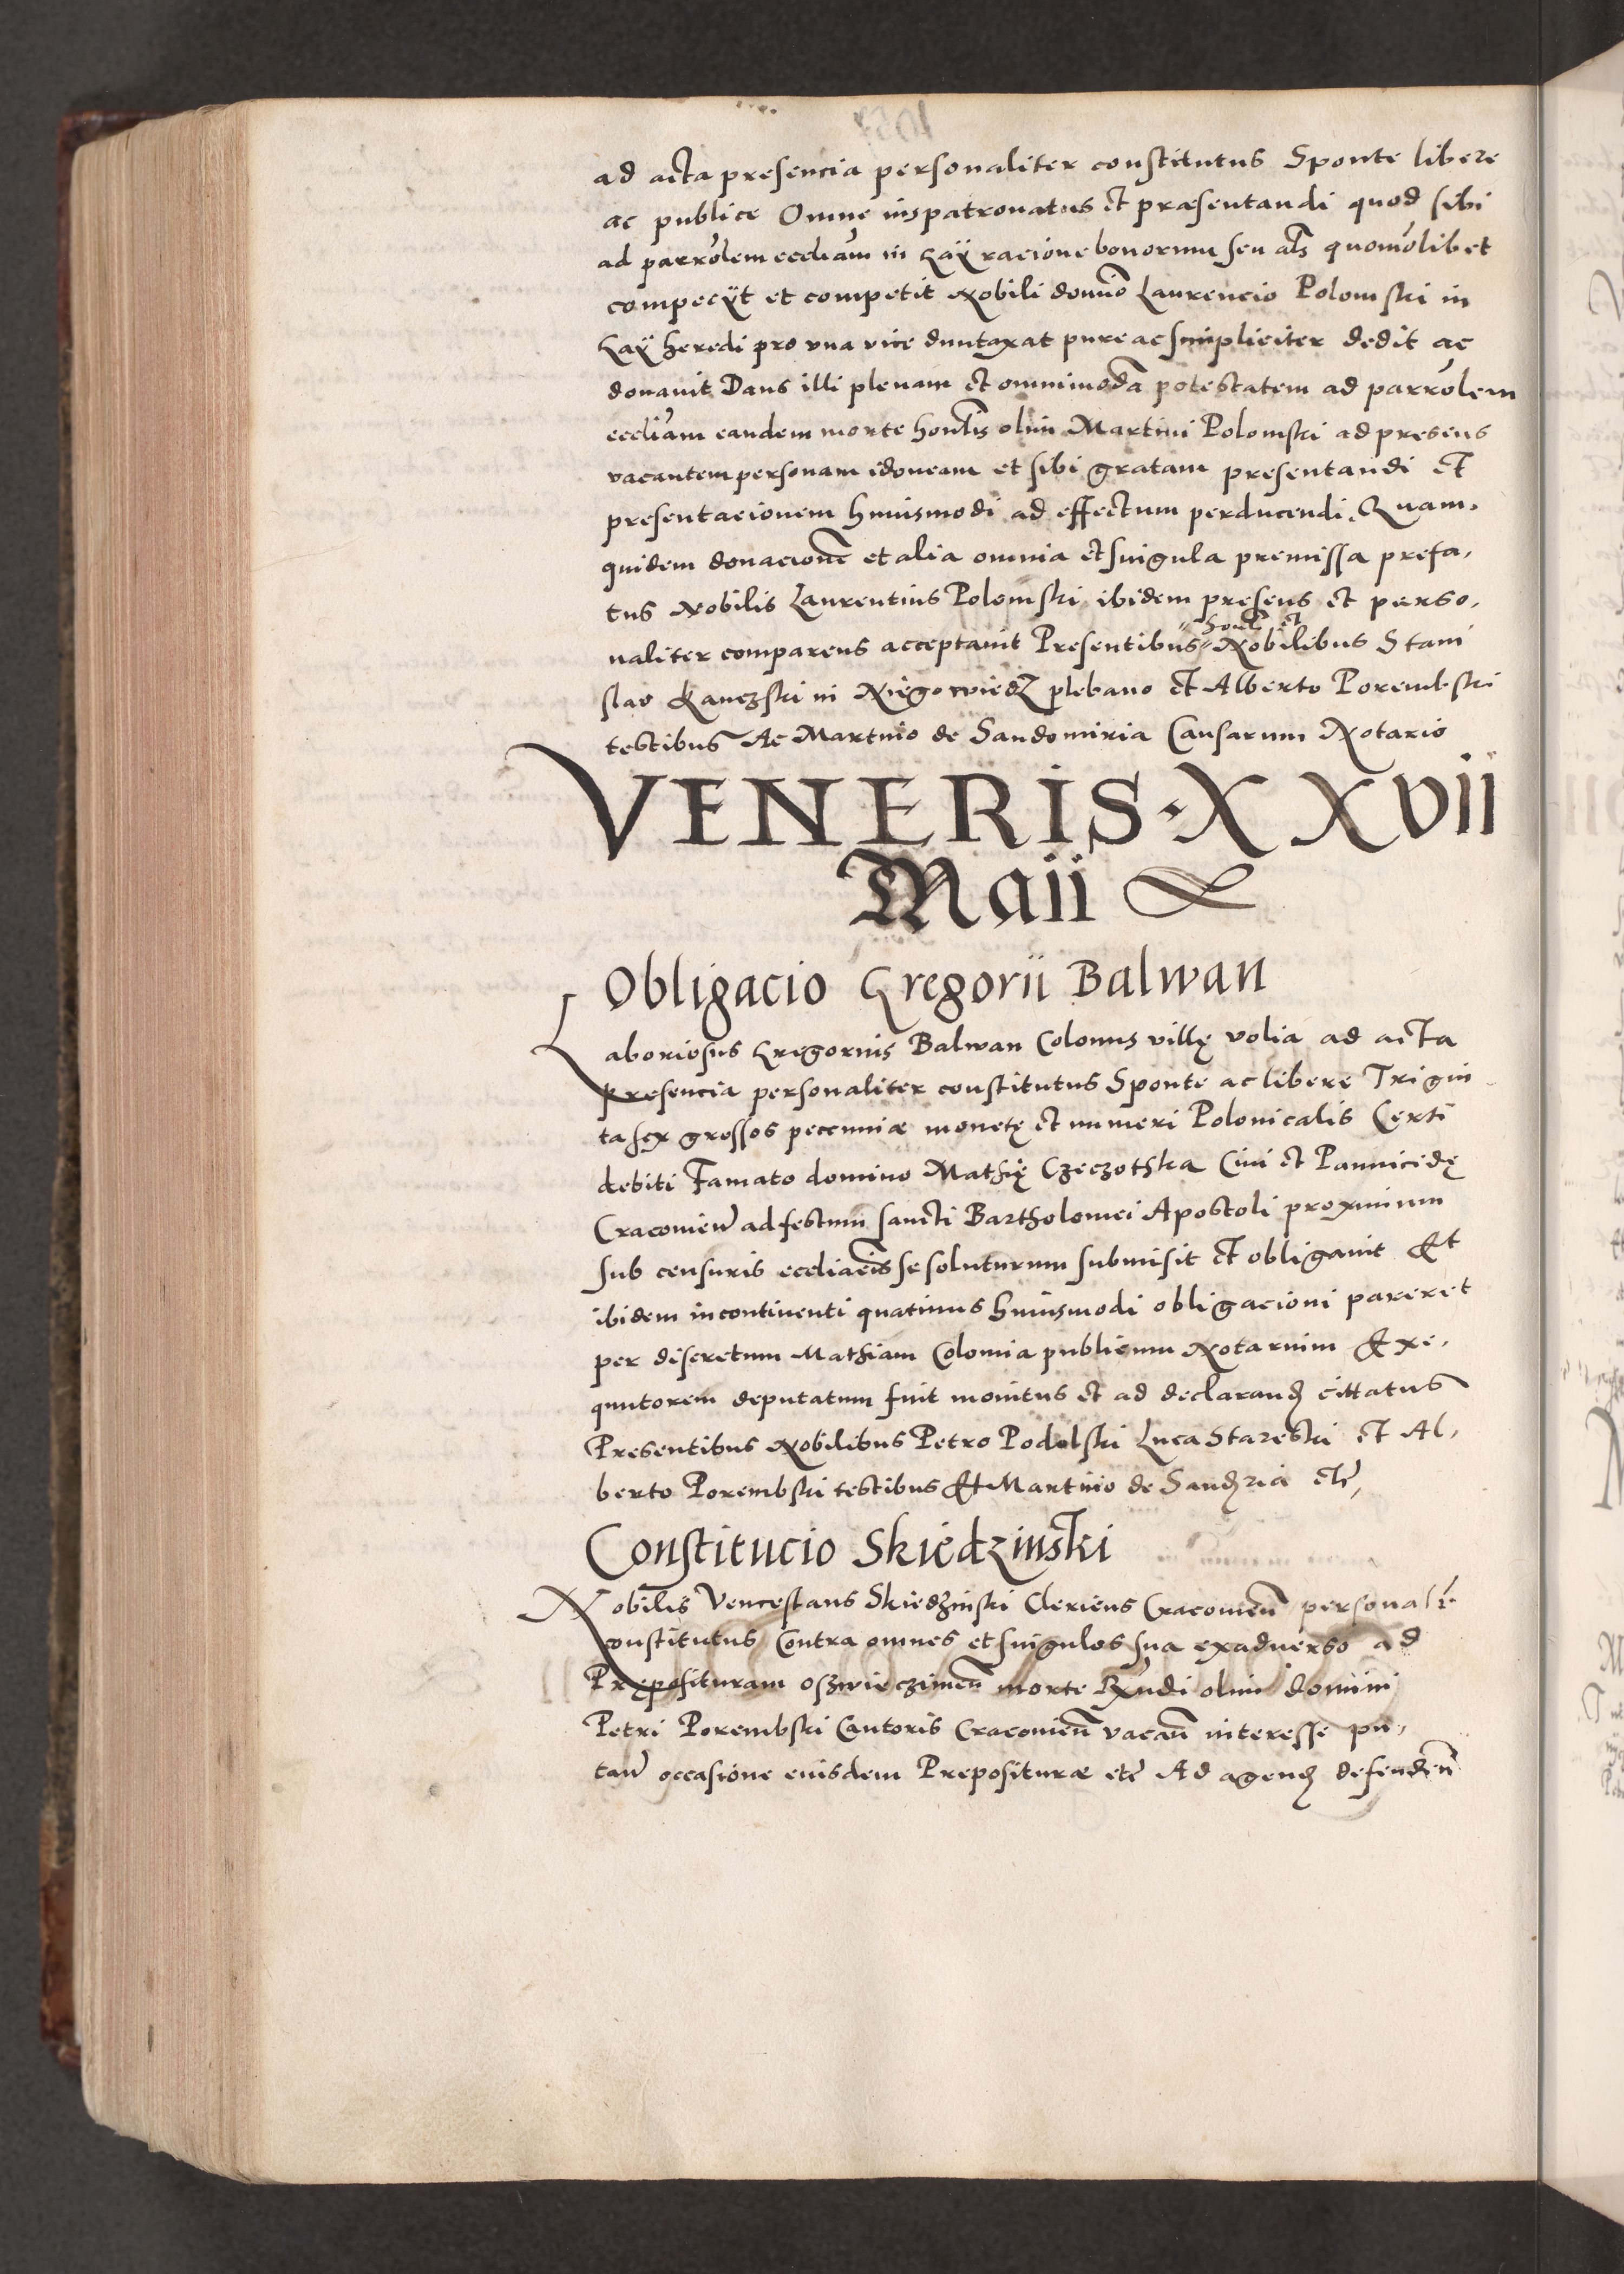 ad acta presencia personaliter constitutus Sponte libere
ac publice Omne iuspatronatus et præsentandi quod sibi
ad parrolem eccliam in Gaÿ racione bonorum seu als quomolibet
compecÿt et competit Nobili domino Laurencio Polomski in
Gaÿ heredi pro vna vice duntaxat pure ac simpliciter dedit ac
donauit Dans illi plenam et omnimoda potestatem ad parrolem
eccliam eandem morte honlis olim Martini Polomski ad presens
vacantem personam idoneam et sibi gratam presentandi et
presentacionem huiusmodi ad effectum perducendi. Quam,
quidem donacione et alia omnia et singula premissa prefa,
tus Nobilis Laurentius Polomski ibidem presens et perso,
honl et
naliter comparens acceptauit Presentibus Nobilibus Stani
slao Kanczski in Niegowiedz plebano et Alberto Porembski
testibus Ac Martino de Sandomiria Causarum Notario
VENERIS · XXVII
Maii
Obligacio Gregorii Balwan
Laboriosus Gregorius Balwan Colonus villę volia ad acta
presencia personaliter constitutus Sponte ac libere Trigin
ta sex grossos pecuniæ monetę et numeri Polonicalis Certi
debiti Famato domino Mathię Czeczothka Ciui et Pannicidę
Cracouien ad festum sancti Bartholomei Apostoli proximum
sub censuris eccliacis se soluturum submisit et obligauit Et
ibidem incontinenti quatinus huiusmodi obligacioni pareret
per discretum Mathiam Colomia publicum Notarium Exe,
quutorem deputatum fuit monitus et ad declarand cittatus
Presentibus Nobilibus Petro Podolski Luca Stareski et Al,
berto Porembski testibus Et Martino de Sandria etc
Constitucio Skiedzinski
Nobilis Venceslaus Skiedzinski Clericus Cracouien personalr
constitutus Contra omnes et singulos sua exaduerso ad
Pręposituram Oszwieczimen morte Rndi olim domini
Petri Porembski Cantoris Cracouien vacan interesse pu,
tan occasione eiusdem Preposituræ etc Ad agend defenden